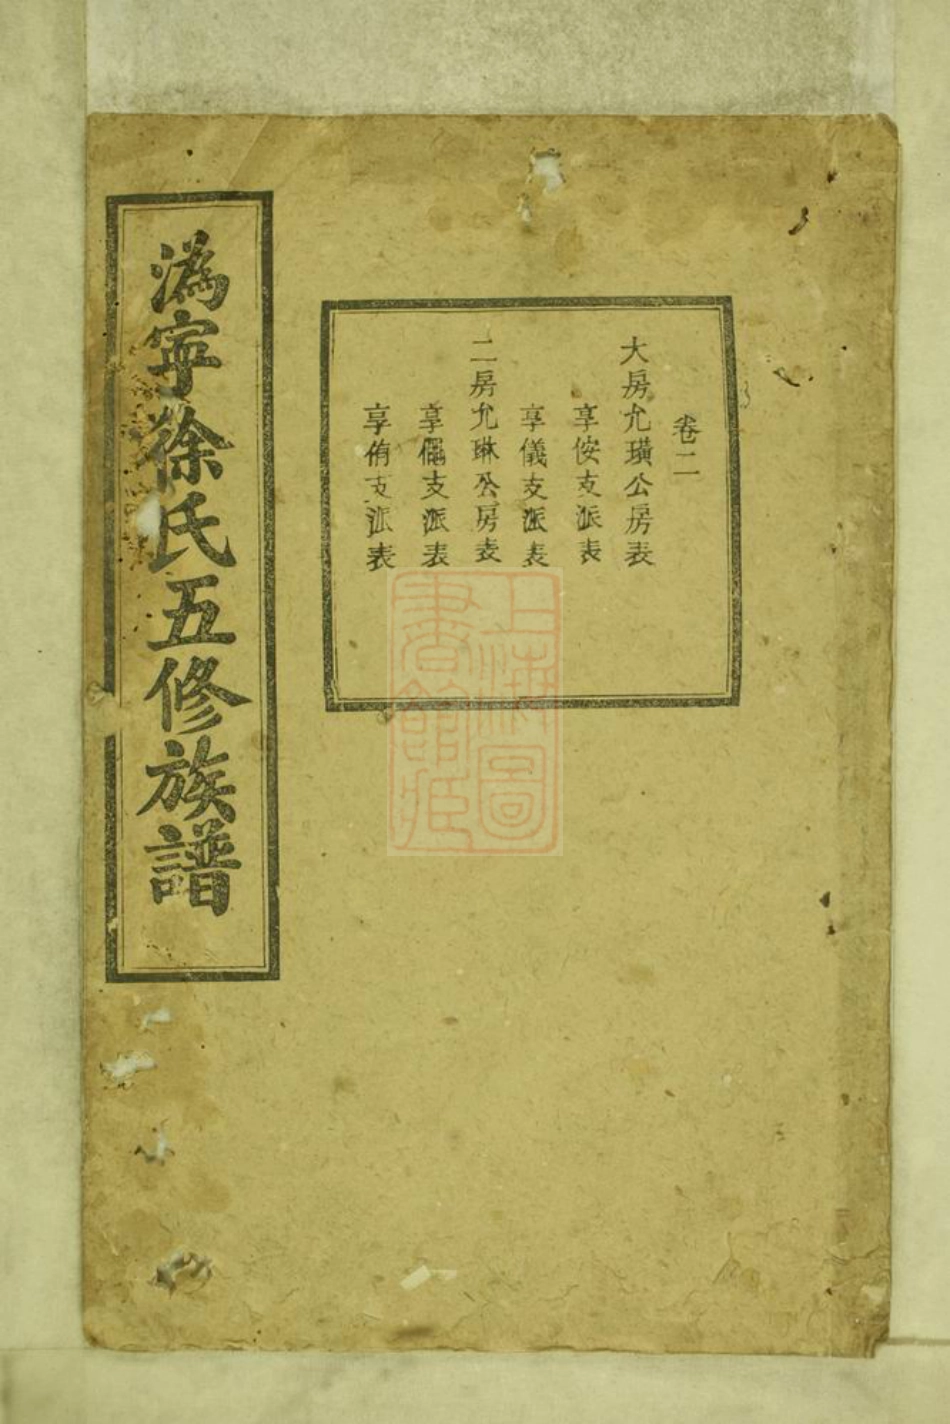 卷二
大房允璜公房表
享侒支派表
享儀支派表
二房允琳公房表
享支派表
享侑支派表
溈寧徐氏五修族譜
上海圖書館藏